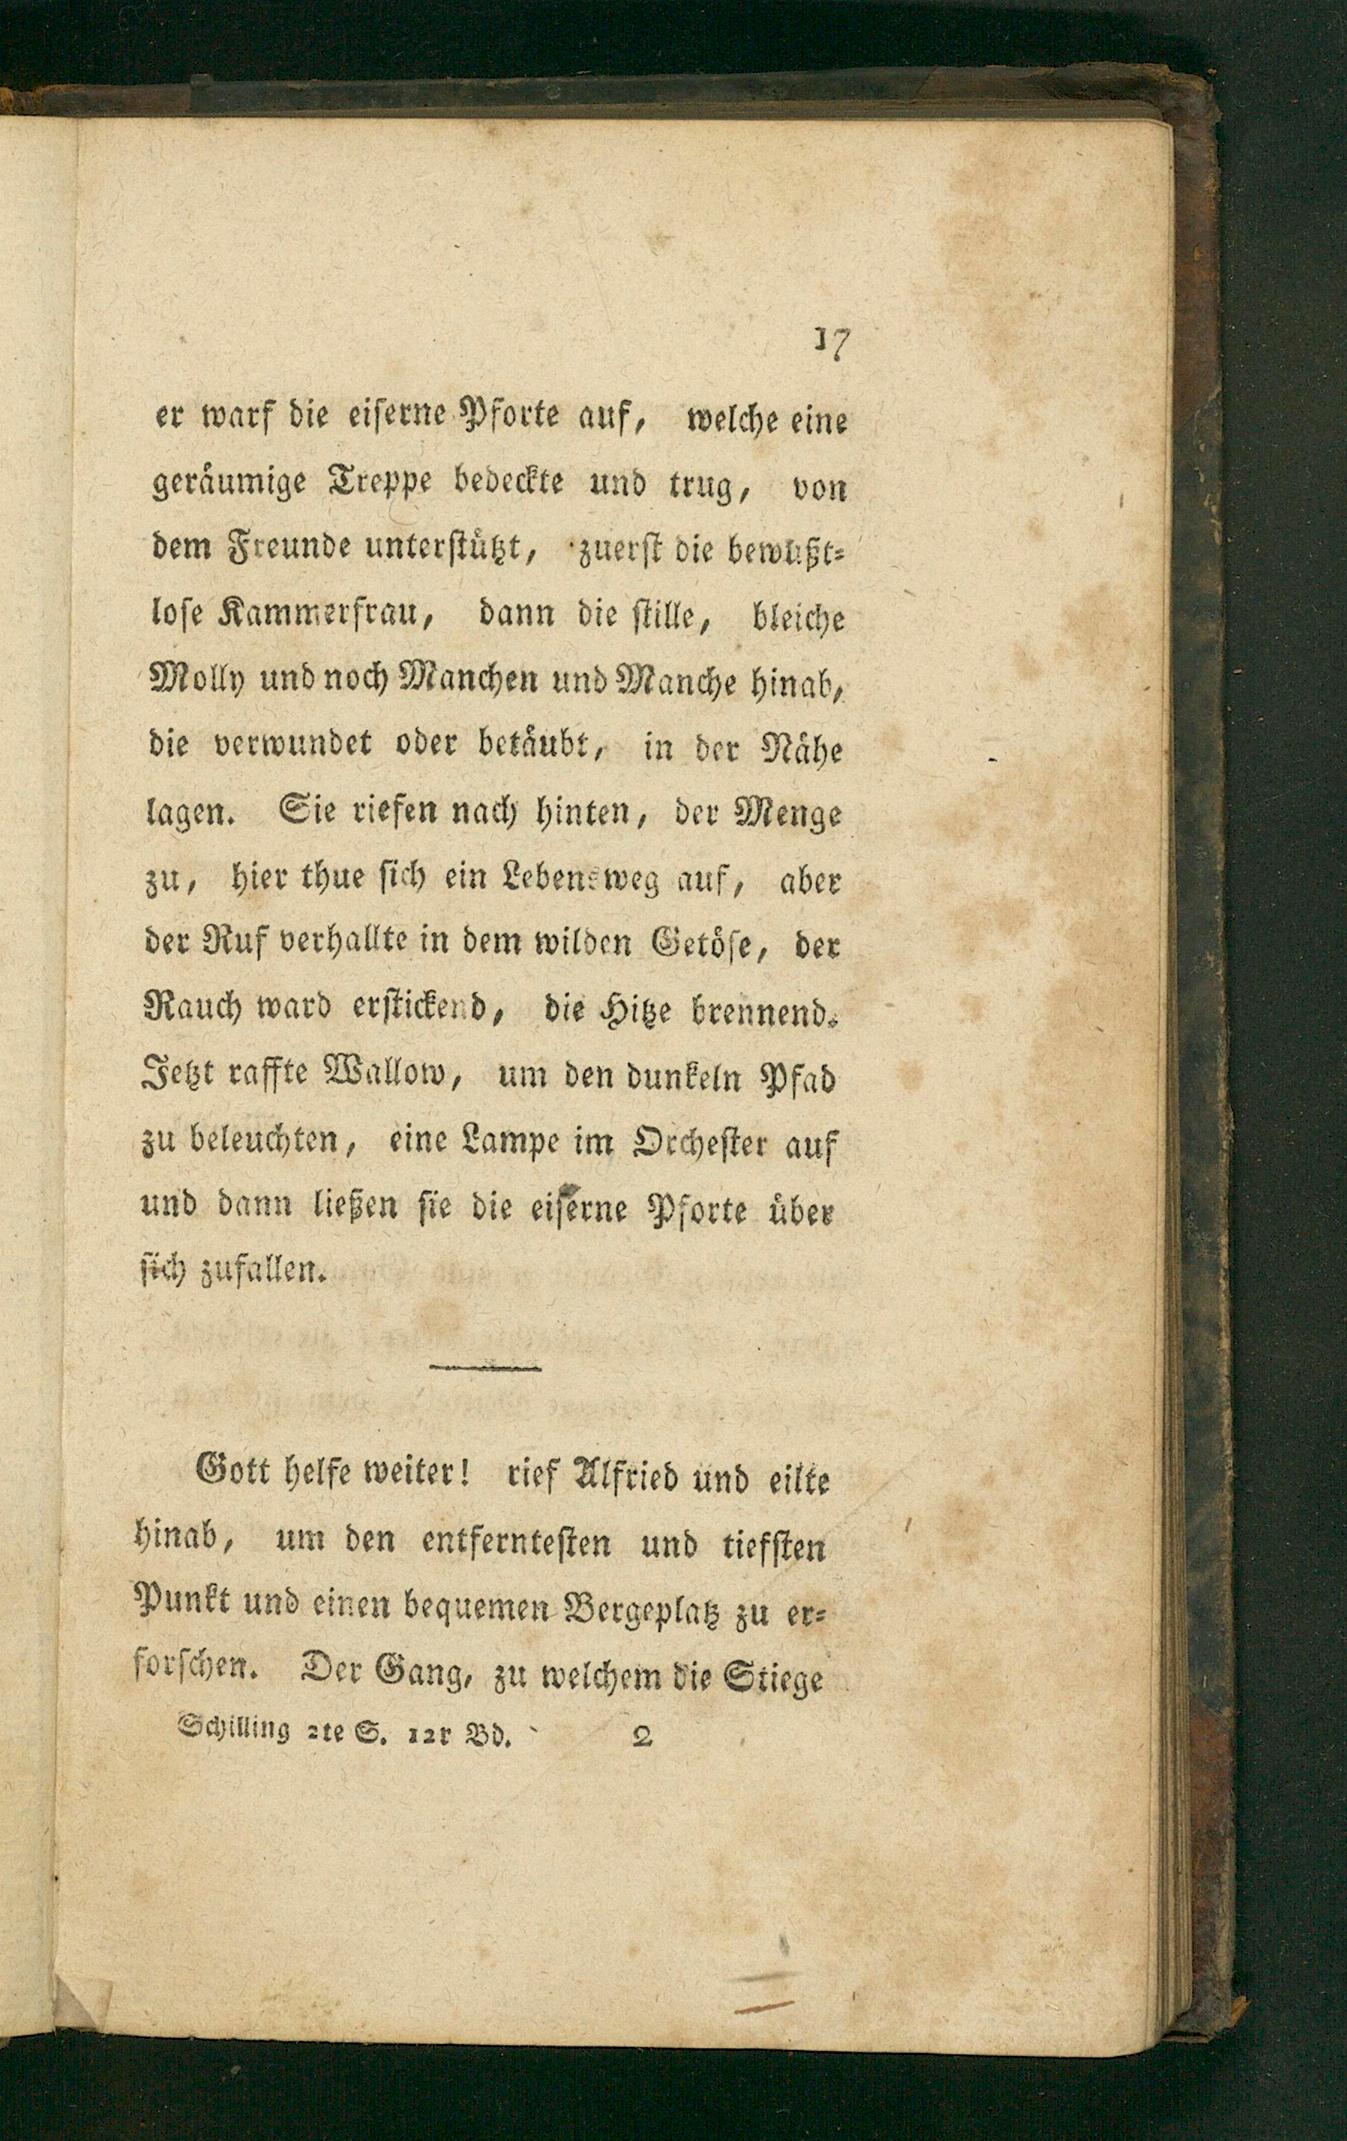 17
er warf die eiserne Pforte auf, welche eine
geräumige Treppe bedeckte und trug, von
dem Freunde unterstützt, zuerst die bewußt-
lose Kammerfrau, dann die stille, bleiche
Molly und noch Manchen und Manche hinab,
die verwundet oder betäubt, in der Nähe
lagen. Sie riefen nach hinten, der Menge
zu, hier thue sich ein Lebensweg auf, aber
der Ruf verhallte in dem wilden Getöse, der
Rauch ward erstickend, die Hitze brennend.
Jetzt raffte Wallow, um den dunkeln Pfad
zu beleuchten, eine Lampe im Orchester auf
und dann ließen sie die eiserne Pforte über
sich zufallen.
Gott helfe weiter! rief Alfried und eilte
hinab, um den entferntesten und tiefsten
Punkt und einen bequemen Bergeplatz zu er-
forschen. Der Gang, zu welchem die Stiege
Schilling 2te S. 12r Bd. 2